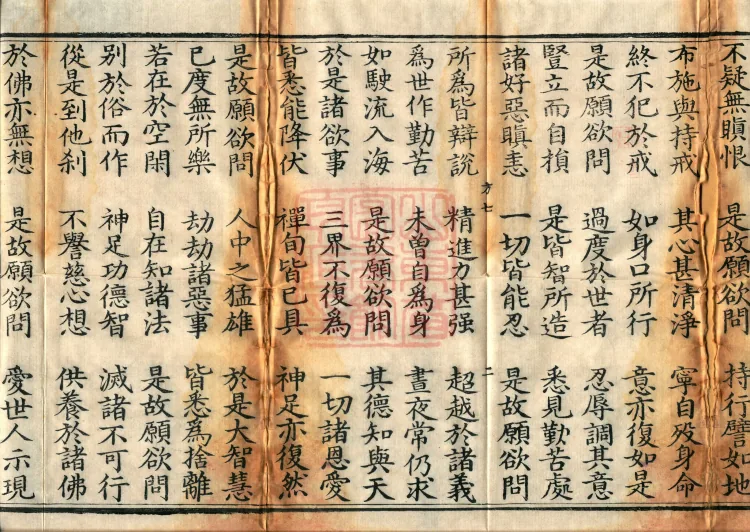 不疑無瞋恨 是故願欲問 持行譬如地
布施與持戒 其心甚清淨 寧自歿身命
終不犯於戒 如身口所行 意亦復如是
是故願欲問 過度於世者 忍辱調其意
豎立而自損 是皆智所造 悉見勤苦處
諸好惡瞋恚 一切皆能忍 是故願欲問
方七 二
所為皆辯說 精進力甚强 超越於諸義
為世作勤苦 未曾自為身 晝夜常仍求
如駛流入海 是故願欲問 其德知與天
於是諸欲事 三界不復為 一切諸恩愛
皆悉能降伏 禪旬皆已具 神足亦復然
是故願欲問 人中之猛雄 於是大智慧
已度無所樂 劫劫諸惡事 皆悉為捨離
若在於空閑 自在知諸法 是故願欲問
別於俗而作 神足功德智 滅諸不可行
從是到他剎 不譽慈心想 供養於諸佛
於佛亦無想 是故願欲問 愛世人示現